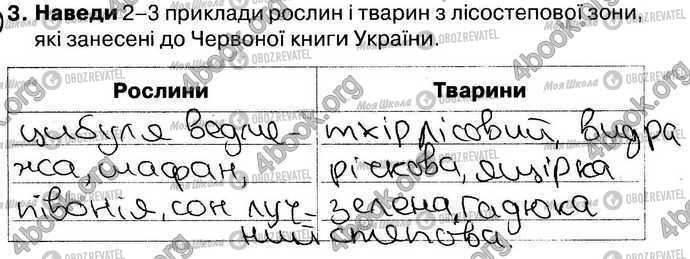 3. Наведи 2–3 приклади рослин і тварин з лісостепової зони,
які занесені до Червоної книги України.
Моя Школа OBOZREVATEL
Рослини Тварини
цибуля ведме- тхір лісовий, видра
жа, шафран, річкова, ящірка
півонія, сон луч- зелена, гадюка
ний степова.
4book.org